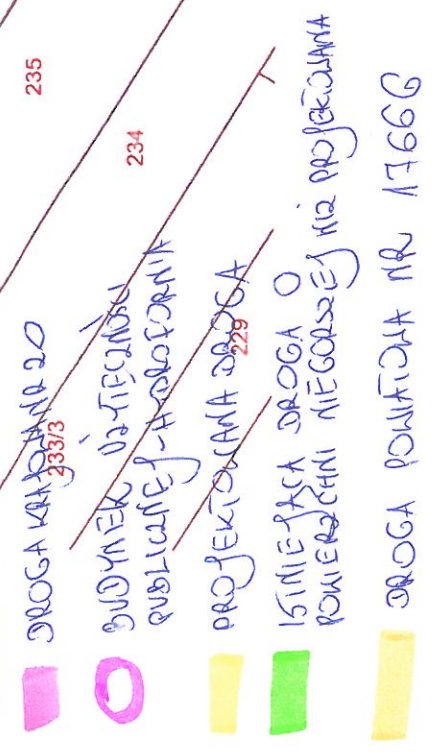 235
234
DROGA KRAJOWA NR 20
233/3
BUDYNEK UŻYTECZNOŚCI
PUBLICZNEJ - HYDROFORNIA
PROJEKTOWANA DROGA
229
ISTNIEJĄCA DROGA O
POWIERZCHNI NIEGORSZEJ NIŻ PROJEKTOWANA
DROGA POWIATOWA NR 1766G